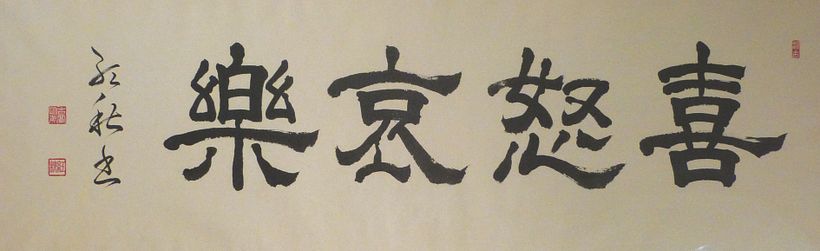 喜怒哀樂
秋書